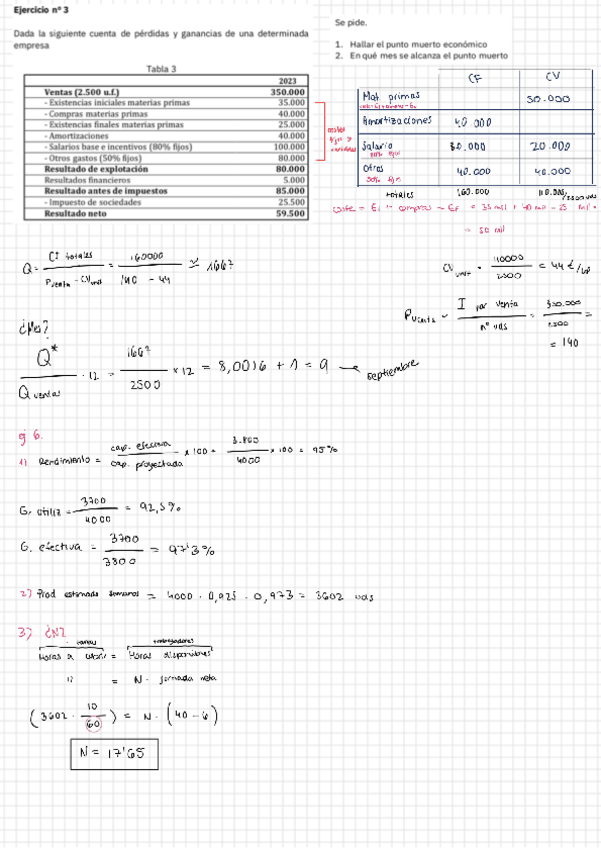 Ejercicio nº 3
Dada la siguiente cuenta de pérdidas y ganancias de una determinada
empresa
Se pide.
1. Hallar el punto muerto económico
2. En qué mes se alcanza el punto muerto
Tabla 3
2023
Ventas (2.500 u.f.) 350.000
- Existencias iniciales materias primas 35.000
- Compras materias primas 40.000
- Existencias finales materias primas 25.000
- Amortizaciones 40.000
- Salarios base e incentivos (80% fijos) 100.000
- Otros gastos (50% fijos) 80.000
Resultado de explotación 80.000
Resultados financieros 5.000
Resultado antes de impuestos 85.000
- Impuesto de sociedades 25.500
Resultado neto 59.500
costes fijos y variables
CF CV
Mat. primas 50.000
Amortizaciones 40.000
Salario 80.000 20.000
Otros 40.000 40.000
50% fijo
totales 160.000 110.000/2500 uds
coste = Ei + compras - Ef = 35 mil + 40 mil - 25 mil =
= 50 mil
Q = CF totales / Pventa - CVunit = 160000 / 140 - 44 ≃ 1667
CVunit = 110000 / 2500 = 44 €/ud
Pventa = I por venta / nº uds = 350.000 / 2500 =
= 140
¿Mes?
Q* / Q ventas · 12 = 1667 / 2500 × 12 = 8,0016 + 1 = 9 → septiembre
ej 6.
1) Rendimiento = cap. efectiva / cap. proyectada × 100 = 3.800 / 4000 × 100 = 95%
G. utiliz = 3700 / 4000 = 92,5%
G. efectiva = 3700 / 3800 = 97'3%
2) Prod estimada semanal = 4000 · 0,925 · 0,973 = 3602 uds
3) ¿N?
tareas trabajadores
Horas a cubrir = Horas disponibles
" = N · jornada neta
(3602 · 10 / 60) = N · (40 - 6)
N = 17'65